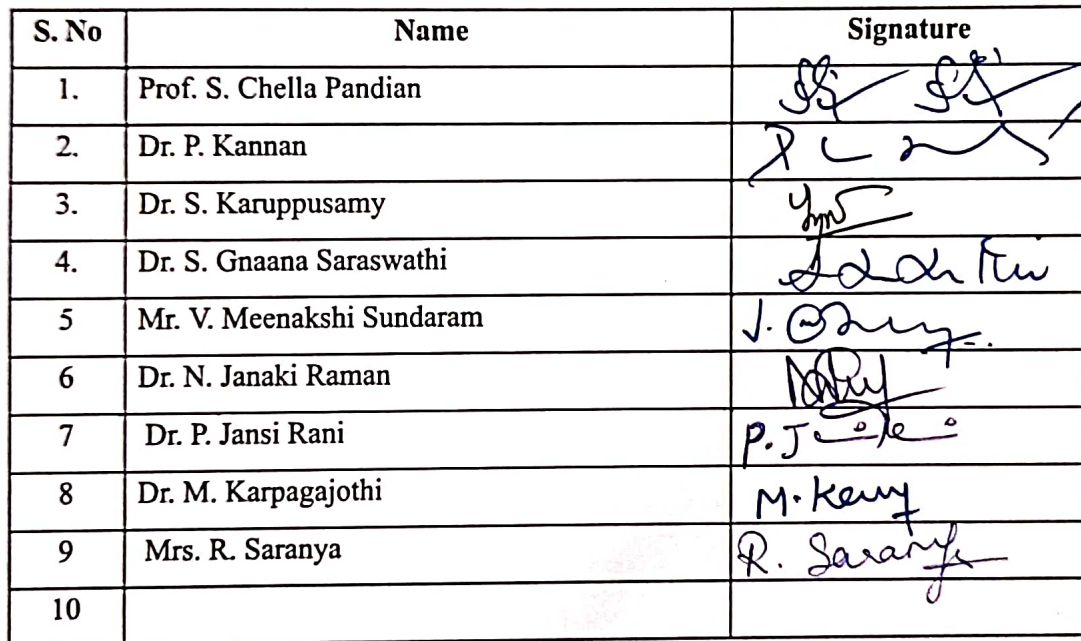 S. No Name Signature
1. Prof. S. Chella Pandian
2. Dr. P. Kannan
3. Dr. S. Karuppusamy
4. Dr. S. Gnaana Saraswathi
5 Mr. V. Meenakshi Sundaram
6 Dr. N. Janaki Raman
7 Dr. P. Jansi Rani P. J
8 Dr. M. Karpagajothi M.
9 Mrs. R. Saranya R. Saranya
10